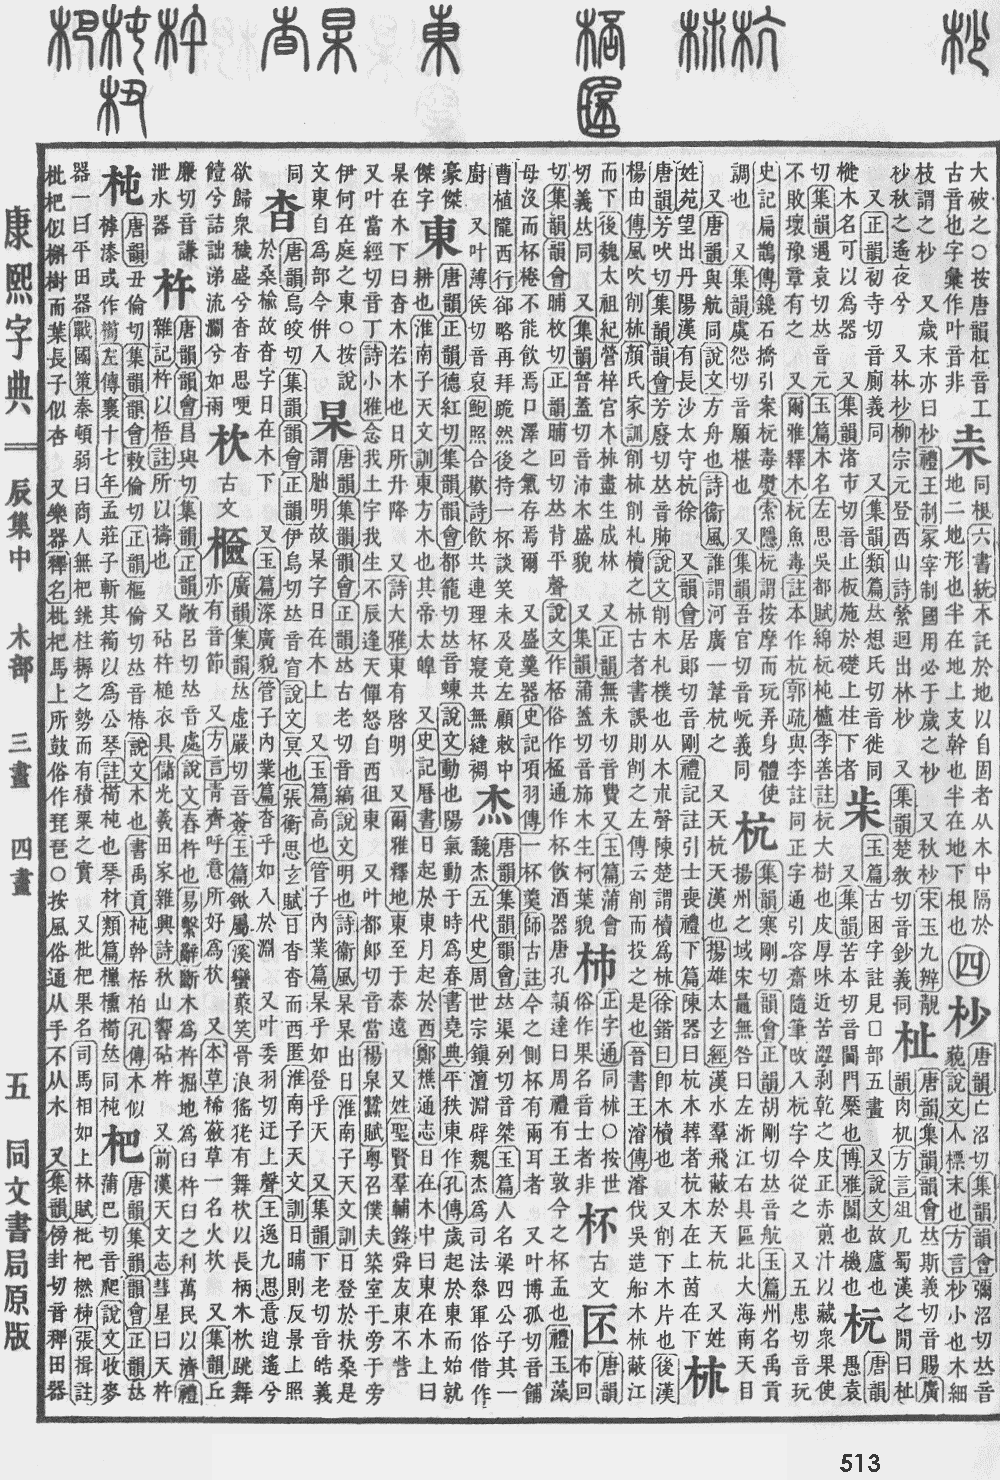 大破之○按唐韻杠音工
古音也字彙作叶音非
同根六書統木託於地以自固者从木中隔於
地二地形也半在地上支幹也半在地下根也
四
杪
唐韻亡沼切集韻韻會彌沼切𠀤音
藐說文木標末也方言杪小也木細
枝謂之杪 又歲末亦曰杪禮王制冢宰制國用必于歲之杪 又秋杪宋玉九辯靚
杪秋之遙夜兮 又林杪柳宗元登西山詩縈迴出林杪 又集韻楚教切音鈔義同
杫
唐韻集韻韻會𠀤斯義切音賜廣
韻肉机方言俎几蜀漢之閒曰杫
又正韻初寺切音廁義同 又集韻類篇𠀤想氏切音徙同
樅木名可以為器 又集韻渚市切音止板施於礎上柱下者
𣏔
玉篇古困字註見囗部五畫 又說文故廬也
又集韻苦本切音閫門橜也博雅闑也機也
杬
唐韻
愚袁
切集韻遇袁切𠀤音元玉篇木名左思吳都賦綿杬杶櫨李善註杬大樹也皮厚味近苦澀剝乾之皮正赤煎汁以藏衆果使
不敗壞豫章有之 又爾雅釋木杬魚毒註本作杭郭疏與李註同正字通引容齋隨筆攺入杬字今從之 又五患切音玩
史記扁鵲傳鑱石撟引案杬毒熨索隱杬謂按摩而玩弄身體使
調也 又集韻虞怨切音願椹也 又集韻吾官切音岏義同
杭
集韻寒剛切韻會正韻胡剛切𠀤音航玉篇州名禹貢
揚州之域宋鼂無咎曰左浙江右具區北大海南天目
又唐韻與航同說文方舟也詩衞風誰謂河廣一葦杭之 又天杭天漢也揚雄太玄經漢水羣飛蔽於天杭 又姓
姓苑望出丹陽漢有長沙太守杭徐 又韻會居郞切音剛禮記註引士喪禮下篇陳器曰杭木葬者杭木在上茵在下
杮
唐韻芳吠切集韻韻會芳廢切𠀤音肺說文削木札樸也从木𣎵聲陳楚謂櫝爲杮徐鍇曰卽木櫝也 又削下木片也後漢
楊由傳風吹削杮顏氏家訓削杮削札牘之杮古者書誤則削之左傳云削而投之是也晉書王濬傳濬伐吳造船木杮蔽江
而下後魏太祖紀營梓宮木杮盡生成林 又正韻無未切音費又玉篇蒲會
切義𠀤同 又集韻普蓋切音沛木盛貌 又集韻蒲蓋切音旆木生柯葉貌
柿
正字通同柹○按世
俗作果名音士者非
杯
古文
匥
唐韻
布回
切集韻韻會晡枚切正韻晡回切𠀤背平聲說文作桮俗作盃通作杯飲酒器唐孔頴達曰周禮有玉敦今之杯盂也禮玉藻
母沒而杯棬不能飲焉口澤之氣存焉爾 又盛羹器史記項羽傳一杯羹師古註今之側杯有兩耳者 又叶博孤切音餔
曹植隴西行郤略再拜跪然後持一杯談笑未及竟左顧敕中
廚 又叶薄侯切音裒鮑照合歡詩飲共連理杯寢共無縫裯
杰
唐韻集韻韻會𠀤渠列切音桀玉篇人名梁四公子其一
杰五代史周世宗鎮澶淵辟魏杰爲司法參軍俗借作
豪傑
傑字
東
唐韻正韻德紅切集韻韻會都籠切𠀤音蝀說文動也陽氣動于時爲春書堯典平秩東作孔傳歲起於東而始就
耕也淮南子天文訓東方木也其帝太皡 又史記曆書日起於東月起於西鄭樵通志日在木中曰東在木上曰
杲在木下曰杳木若木也日所升降 又詩大雅東有啓明 又爾雅釋地東至于泰遠 又姓聖賢羣輔錄舜友東不訾
又叶當經切音丁詩小雅念我土宇我生不辰逢天僤怒自西徂東 又叶都郞切音當楊泉蠶賦粵召僕夫築室于旁于旁
伊何在庭之東○按說
文東自爲部今倂入
杲
唐韻集韻韻會正韻𠀤古老切音縞說文明也詩衞風杲杲出日淮南子天文訓日登於扶桑是
謂朏明故杲字日在木上 又玉篇高也管子內業篇杲乎如登乎天 又集韻下老切音皓義
同
杳
唐韻烏皎切集韻韻會正韻伊鳥切𠀤音窅說文冥也張衡思玄賦日杳杳而西匿淮南子天文訓日晡則反景上照
於桑楡故杳字日在木下 又玉篇深廣貌管子內業篇杳乎如入於淵 又叶委羽切迂上聲王逸九思意逍遙兮
欲歸衆穢盛兮杳杳思哽
饐兮詰詘涕流瀾兮如雨
杴
古文
廣韻集韻𠀤虛嚴切音薟玉篇鍬屬溪蠻叢笑骨浪傜狫有舞杴以長柄木杴跳舞
亦有音節 又方言靑齊呼意所好爲杴 又本草稀薟草一名火杴 又集韻丘
廉切音謙
泄水器
杵
唐韻韻會昌與切集韻正韻敞呂切𠀤音處說文舂杵也易繫辭斷木爲杵掘地爲臼杵臼之利萬民以濟禮
雜記杵以梧註所以擣也 又砧杵槌衣具儲光羲田家雜興詩秋山響砧杵 又前漢天文志彗星曰天杵
杶
唐韻丑倫切集韻韻會敕倫切正韻樞倫切𠀤音椿說文木也書禹貢杶榦栝柏孔傳木似
樗漆或作櫄左傳襄十七年孟莊子斬其橁以爲公琴註橁杶也琴材類篇櫄橁𠀤同杶
杷
唐韻集韻韻會正韻𠀤
蒲巴切音爬說文收麥
器一曰平田器戰國策秦頓弱曰商人無杷銚椎耨之勢而有積粟之實 又枇杷果名司馬相如上林賦枇杷橪柿張揖註
枇杷似槲樹而葉長子似杏 又樂器釋名枇杷馬上所鼓俗作琵琶○按風俗通从手不从木 又集韻傍卦切音粺田器
康熙字典 辰集中 木部 三畫 四畫 五 同文書局原版
513